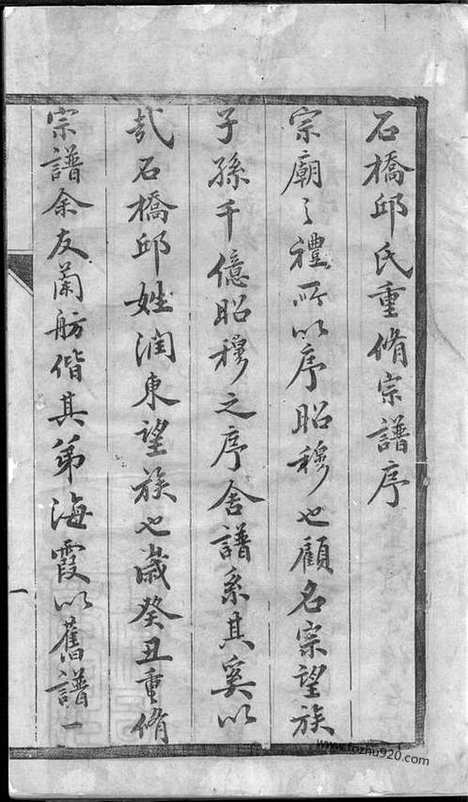 石橋邱氏重脩宗譜序
宗廟之禮所以序昭穆也顧名宗望族
子孫千億昭穆之序舍譜系其奚以
哉石橋邱姓润東望族也歲癸丑重脩
宗譜余友蘭舫偕其弟海霞以舊譜一
一
www.fozhu920.com